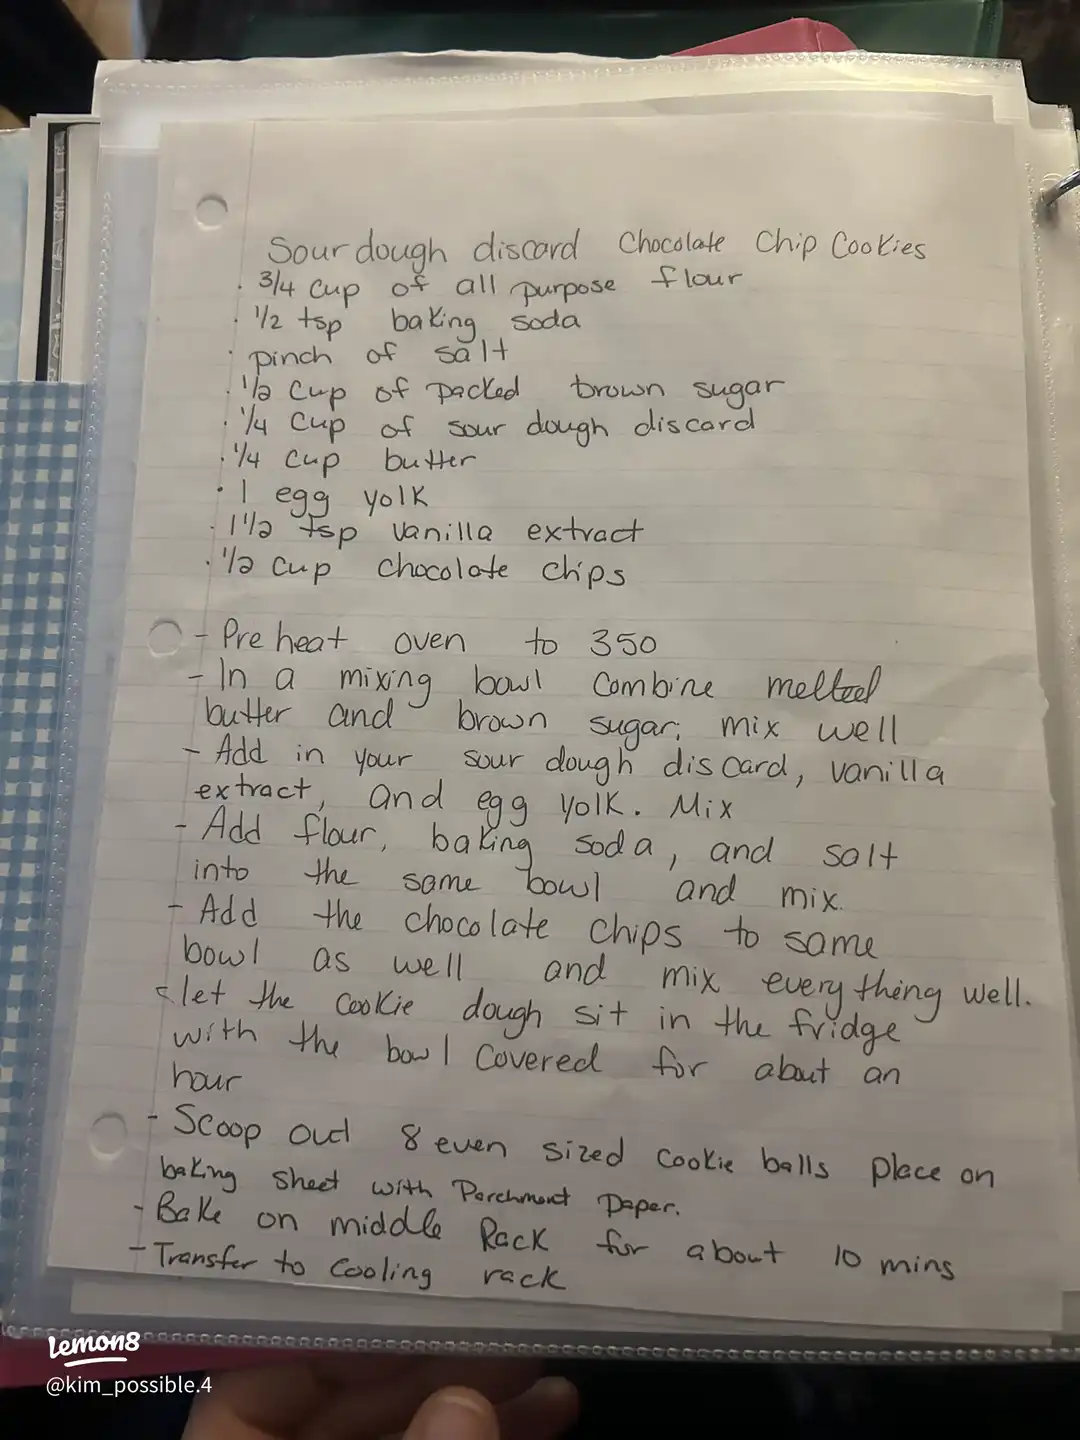 Sour dough discard Chocolate Chip Cookies
· 3/4 cup of all purpose flour
· 1/2 tsp baking soda
· pinch of salt
· 1/2 Cup of packed brown sugar
· 1/4 Cup of sour dough discard
· 1/4 cup butter
· 1 egg yolk
· 1 1/2 tsp vanilla extract
· 1/2 cup chocolate chips
- Pre heat oven to 350
- In a mixing bowl combine melted
butter and brown sugar; mix well
- Add in your sour dough discard, vanilla
extract, and egg yolk. Mix
- Add flour, baking soda, and salt
into the same bowl and mix.
- Add the chocolate chips to same
bowl as well and mix everything well.
- let the cookie dough sit in the fridge
with the bowl covered for about an
hour
- Scoop out 8 even sized cookie balls place on
baking sheet with Parchment paper.
- Bake on middle Rack for about 10 mins
- Transfer to cooling rack
Lemon8
@kim_possible.4